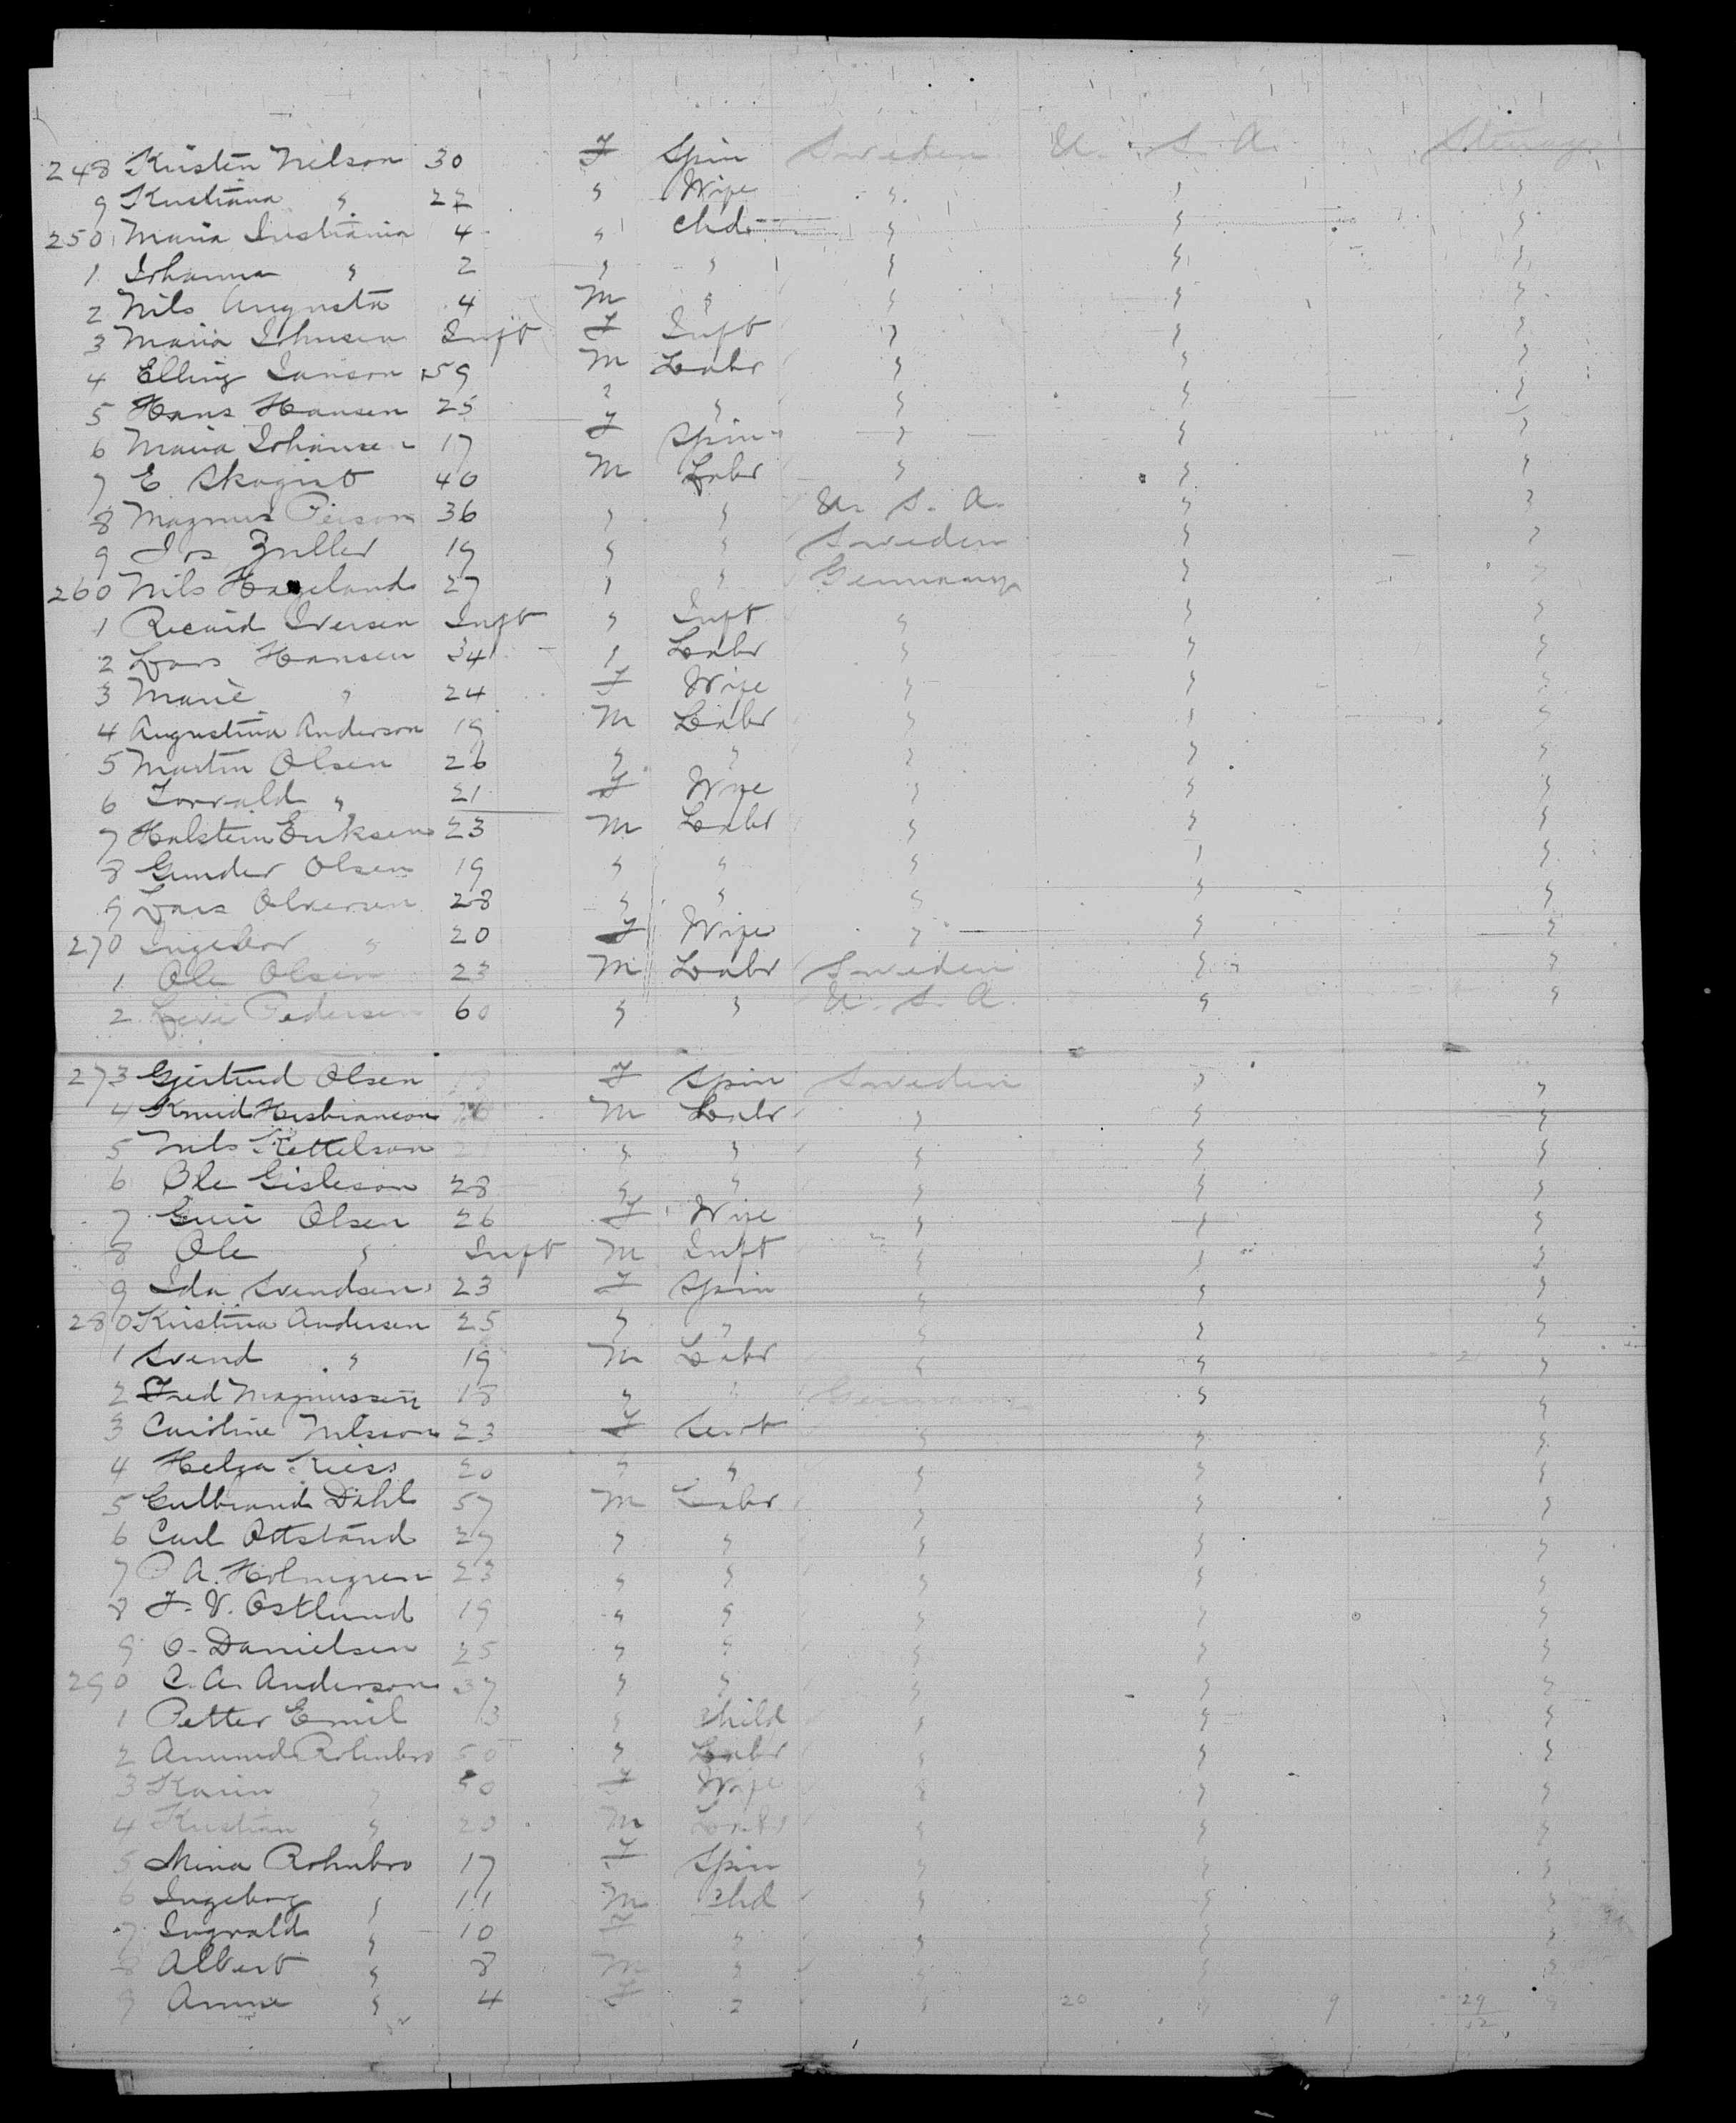 248 Kristen Nelson 30 F Spin Sweden U. S. A. Steerage
9 Kristiana " 22 " Wife " " "
250 Maria Iustiania 4 " Chd " " "
1 Johanna " 2 " " " " "
2 Nils Augusta 4 M " " " "
3 Maria Johnsen Inft F Inft " " "
4 Elling Janson 59 M Labr " " "
5 Hans Hansen 25 " " " " "
6 Maria Johansen 17 F Spin " " "
7 E Skogist 40 M Labr " " "
8 Magnus Peison 36 " " U. S. A. " "
9 Jos Zuller 19 " " Sweden " "
260 Nils Hageland 27 " " Germany " "
1 Recard Iversen Inft " Inft " " "
2 Lars Hansen 34 " Labr " " "
3 Marie " 24 F Wife " " "
4 Augustina Anderson 19 M Labr " " "
5 Martin Olsen 26 " " " " "
6 Torvald " 21 F Wife " " "
7 Halstein Eriksen 23 M Labr " " "
8 Gunder Olsen 19 " " " " "
9 Lars Olversen 28 " " " " "
270 Ingebor " 20 F Wife " " "
1 Ole Olsen 23 M Labr Sweden " "
2 Pedersen 60 " " U. S. A. " "
273 Gjertrud Olsen F Spin Sweden " "
4 Knud M Labr " " "
5 Nils Kettelson " " " " "
6 Ole Gisleson 28 " " " " "
7 Guri Olsen 26 F Wife " " "
8 Ole " Inft M Inft " " "
9 Ida Svendsen 23 F Spin " " "
280 Kristina Andersen 25 " " " " "
1 Svend " 19 M Labr " " "
2 Fred Magnussen 18 " " Germany " "
3 Caroline Nilsson 23 F Servt " " "
4 Helga Kiess 20 " " " " "
5 Gulbrand Dahl 57 M Labr " " "
6 Carl Ottstand 27 " " " " "
7 P A. Holmgren 23 " " " " "
8 F. V. Ostlund 19 " " " " "
9 O. Danielsen 25 " " " " "
290 C. A. Anderson 37 " " " " "
1 Petter Emil 13 " Child " " "
2 Amund Rohnbro 50 " Labr " " "
3 Karin " 50 F Wife " " "
4 Kristian " 20 M Labr " " "
5 Mina Rohnbro 17 F Spin " " "
6 Ingeborg " 11 M Chd " " "
7 Ingvald " 10 F " " " "
8 Albert " 8 M " " " "
9 Anna " 4 F " " 20 " 9 29 "
12